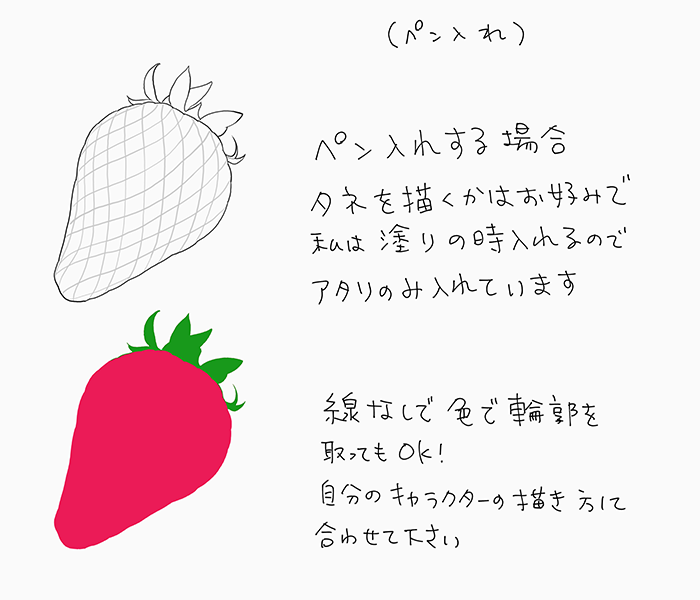 (ペン入れ)
ペン入れする場合
タネを描くかはお好みで
私は塗りの時入れるので
アタリのみ入れています
線なしで色で輪郭を
取ってもOK!
自分のキャラクターの描き方に
合わせて下さい